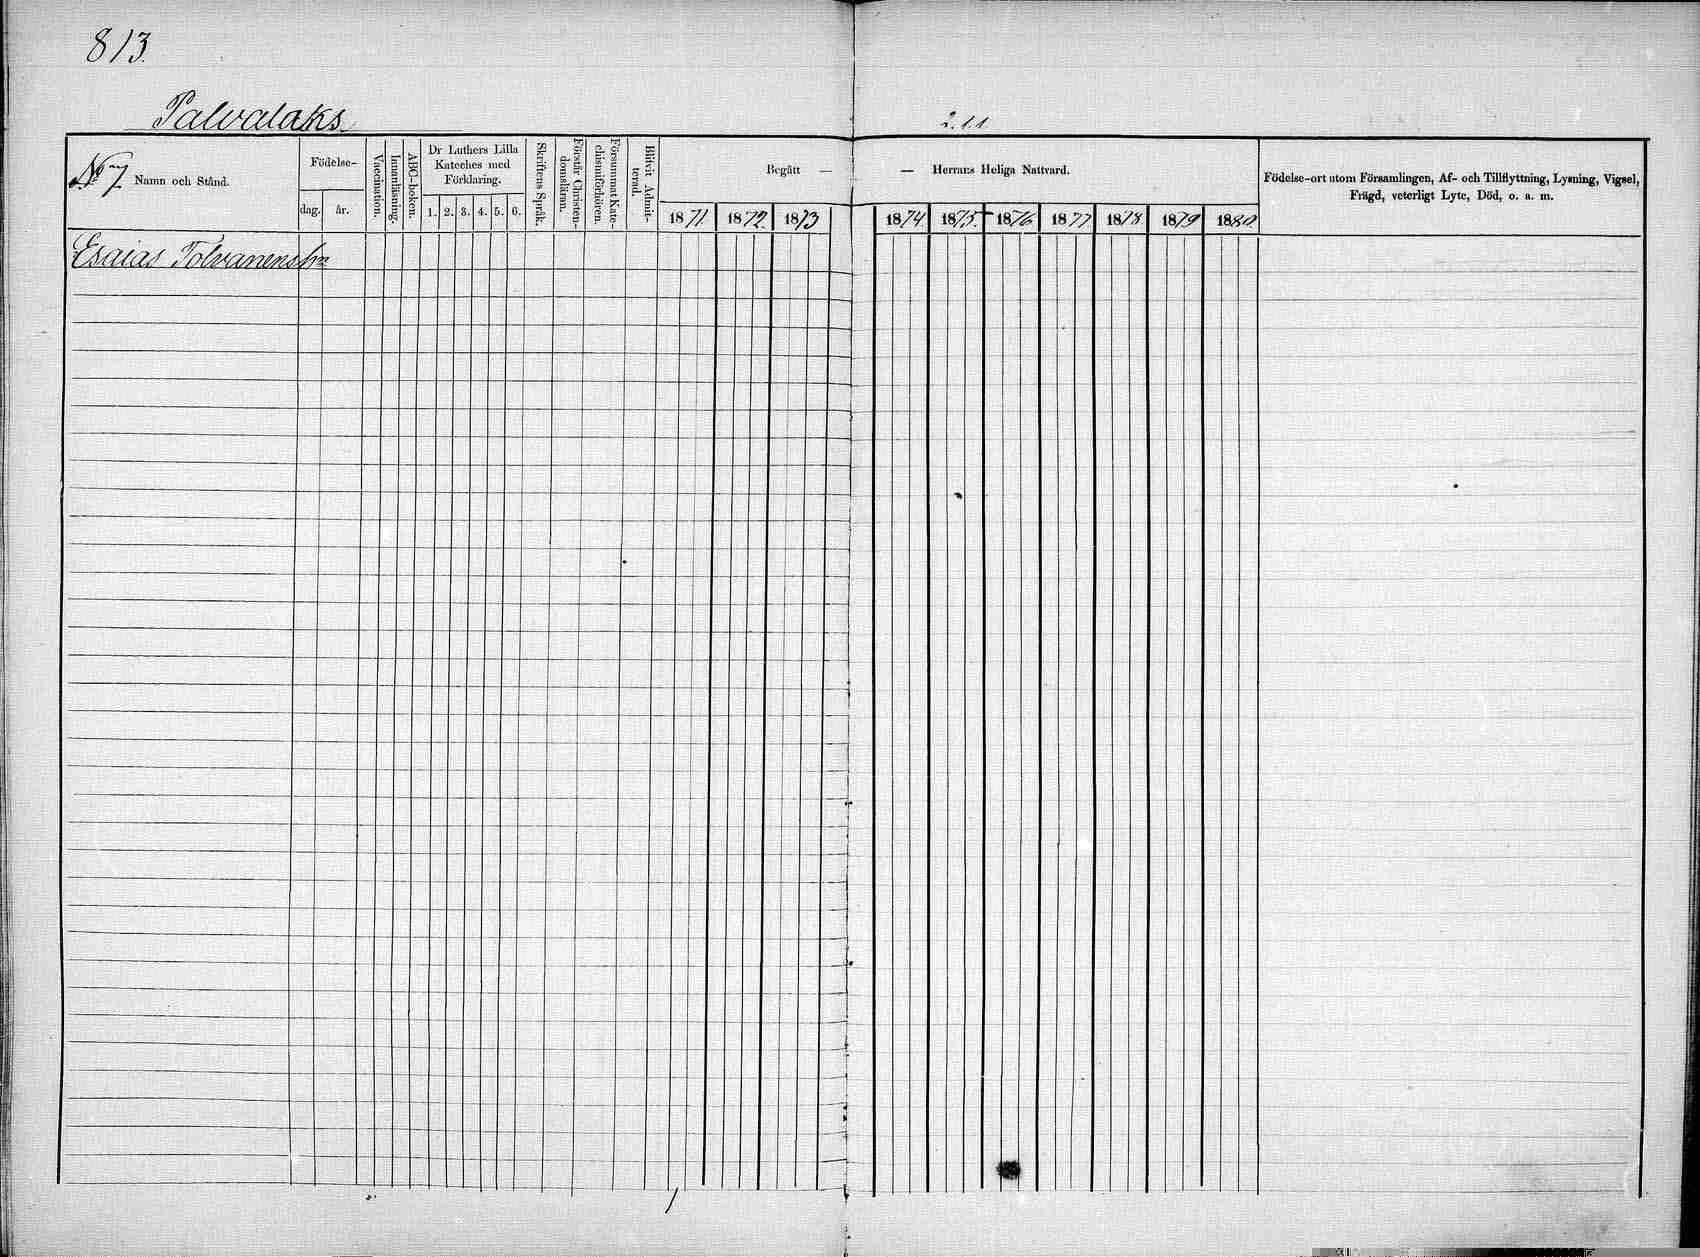 813.
Palvalaks
2.11
No 7. Namn och Stånd.
Födelse-
dag. år.
Vaccination.
Innanläsning.
ABC-boken.
Dr Luthers Lilla
Kateches med
Förklaring.
1. 2. 3. 4. 5. 6.
Skriftens Språk.
Förstår Christen-
domsläran.
Försummat Kate-
chismiförhören.
Blifvit Admit-
terad.
Begått —
— Herrans Heliga Nattvard.
1871 1872. 1873 1874. 1875. 1876 1877 1878 1879 1880.
Födelse-ort utom Församlingen, Af- och Tillflyttning, Lysning, Vigsel,
Frägd, veterligt Lyte, Död, o. a. m.
Esaias Tolvanens